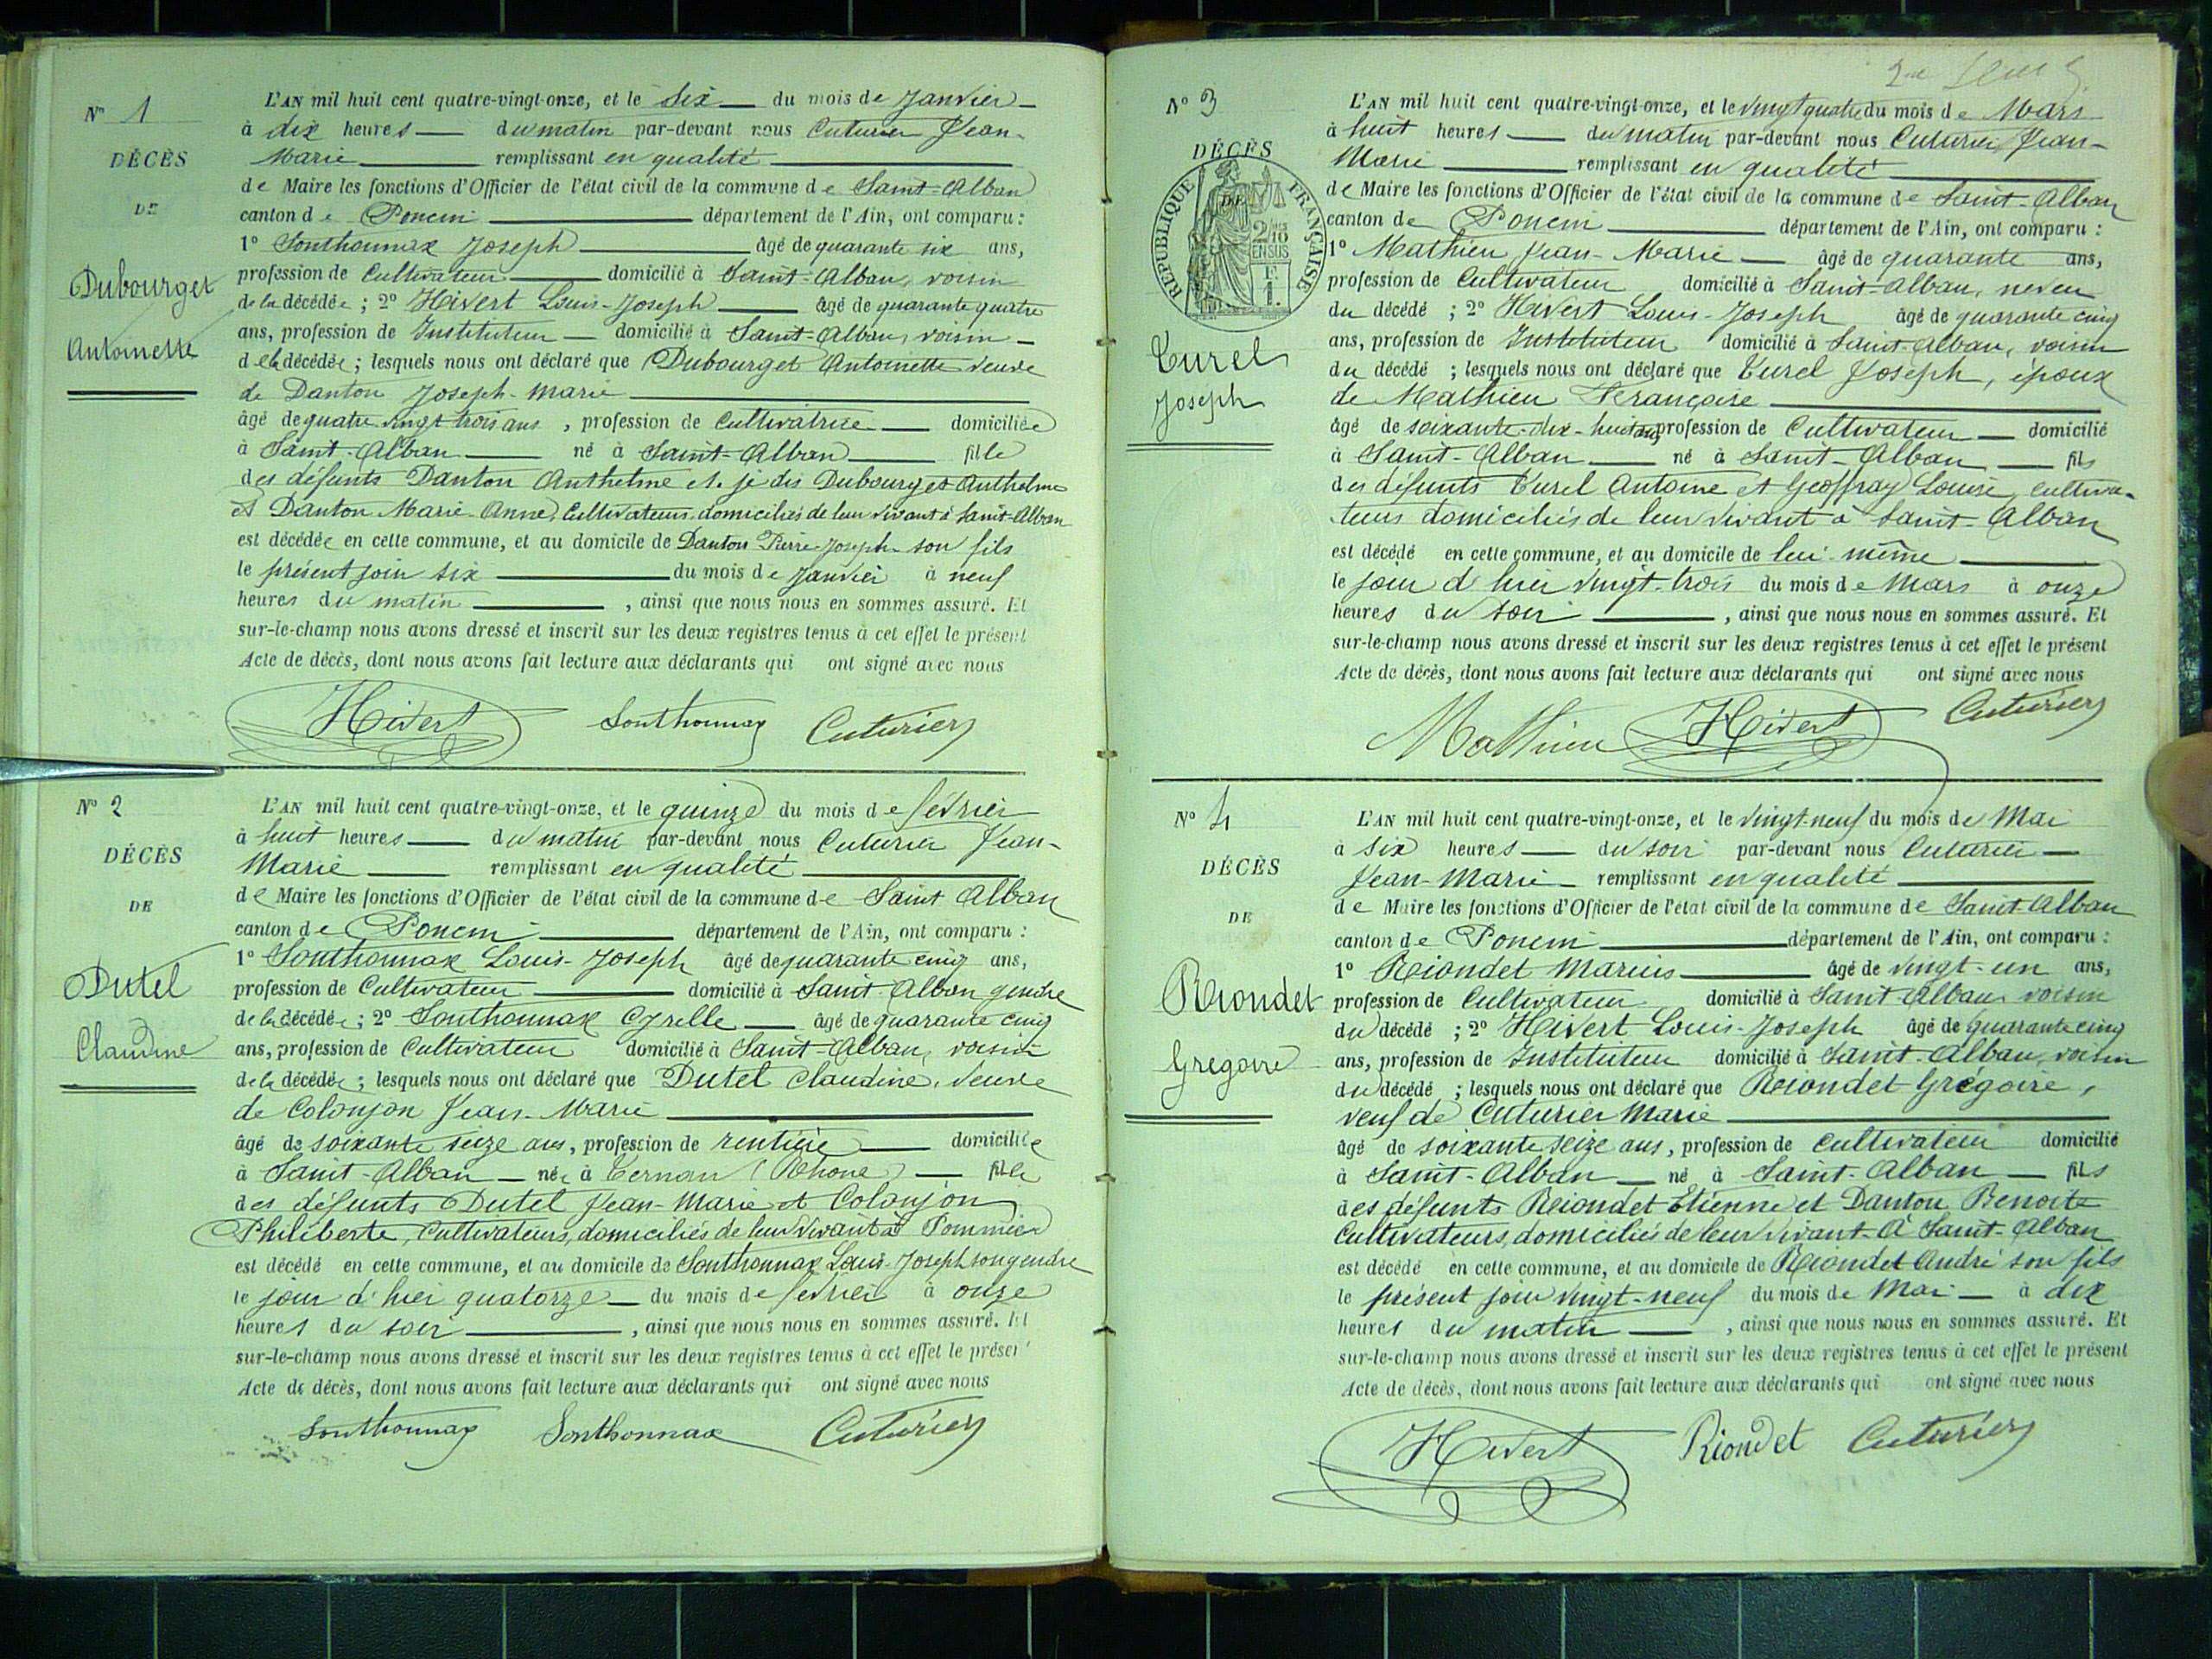 N° 1
DÉCÈS
DE
Dubourget
Antoinette
L'AN mil huit cent quatre-vingt-onze, et le six du mois de Janvier
à dix heures du matin par-devant nous Cuturier Jean-
Marie remplissant en qualité
de Maire les fonctions d'Officier de l'état civil de la commune de Saint-Alban
canton de Poncin département de l'Ain, ont comparu :
1° Sonthonnax Joseph âgé de quarante six ans,
profession de Cultivateur domicilié à Saint-Alban, voisin
de la décédée ; 2° Hivert Louis-Joseph âgé de quarante quatre
ans, profession de Instituteur domicilié à Saint-Alban, voisin
de la décédée ; lesquels nous ont déclaré que Dubourget Antoinette veuve
de Danton Joseph-Marie
âgé de quatre vingt trois ans, profession de Cultivatrice domiciliée
à Saint-Alban né à Saint-Alban fille
des défunts Danton Anthelme et. je dis Dubourget Anthelme
et Danton Marie-Anne, Cultivateurs domiciliés de leur vivant à Saint-Alban
est décédée en cette commune, et au domicile de Danton Pierre-Joseph son fils
le présent jour six du mois de Janvier à neuf
heures du matin, ainsi que nous nous en sommes assuré. Et
sur-le-champ nous avons dressé et inscrit sur les deux registres tenus à cet effet le présent
Acte de décès, dont nous avons fait lecture aux déclarants qui ont signé avec nous
Hivert Sonthonnax Cuturier
N° 2
DÉCÈS
DE
Dutel
Claudine
L'AN mil huit cent quatre-vingt-onze, et le quinze du mois de février
à huit heures du matin par-devant nous Cuturier Jean-
Marie remplissant en qualité
de Maire les fonctions d'Officier de l'état civil de la commune de Saint Alban
canton de Poncin département de l'Ain, ont comparu :
1° Sonthonnax Louis-Joseph âgé de quarante cinq ans,
profession de Cultivateur domicilié à Saint-Alban gendre
de la décédée ; 2° Sonthonnax Cyrille âgé de quarante cinq
ans, profession de Cultivateur domicilié à Saint-Alban, voisin
de la décédée ; lesquels nous ont déclaré que Dutel Claudine, veuve
de Colonjon Jean-Marie
âgé de soixante seize ans, profession de rentière domiciliée
à Saint-Alban née à Cernan (Rhone) fille
des défunts Dutel Jean-Marie et Colonjon
Philiberte, Cultivateurs, domiciliés de leur vivant à Pommier
est décédé en cette commune, et au domicile de Sonthonnax Louis-Joseph son gendre
le jour d'hier quatorze du mois de février à onze
heures du soir, ainsi que nous nous en sommes assuré. Et
sur-le-champ nous avons dressé et inscrit sur les deux registres tenus à cet effet le présen
Acte de décès, dont nous avons fait lecture aux déclarants qui ont signé avec nous
Sonthonnax Sonthonnax Cuturier
N° 3
DÉCÈS
DE
RÉPUBLIQUE FRANÇAISE
2/10
EN SUS
Curel
Joseph
L'AN mil huit cent quatre-vingt-onze, et le vingt quatre du mois de Mars
à huit heures du matin par-devant nous Cuturier Jean-
Marie remplissant en qualité
de Maire les fonctions d'Officier de l'état civil de la commune de Saint-Alban
canton de Poncin département de l'Ain, ont comparu :
1° Mathieu Jean-Marie âgé de quarante ans,
profession de Cultivateur domicilié à Saint-Alban, neveu
du décédé ; 2° Hivert Louis-Joseph âgé de quarante cinq
ans, profession de Instituteur domicilié à Saint-Alban, voisin
du décédé ; lesquels nous ont déclaré que Curel Joseph, époux
de Mathieu Françoise
âgé de soixante-dix-huit ans, profession de Cultivateur domicilié
à Saint-Alban né à Saint-Alban fils
des défunts Curel Antoine et Geoffray Louise, cultiva-
teurs domiciliés de leur vivant à Saint-Alban
est décédé en cette commune, et au domicile de lui-même
le jour d'hier vingt-trois du mois de Mars à onze
heures du soir, ainsi que nous nous en sommes assuré. Et
sur-le-champ nous avons dressé et inscrit sur les deux registres tenus à cet effet le présent
Acte de décès, dont nous avons fait lecture aux déclarants qui ont signé avec nous
Mathieu Hivert Cuturier
N° 4
DÉCÈS
DE
Riondet
Grégoire
L'AN mil huit cent quatre-vingt-onze, et le vingt-neuf du mois de Mai
à six heures du soir par-devant nous Cuturier
Jean-Marie remplissant en qualité
de Maire les fonctions d'Officier de l'état civil de la commune de Saint-Alban
canton de Poncin département de l'Ain, ont comparu :
1° Riondet Marius âgé de vingt-un ans,
profession de Cultivateur domicilié à Saint-Alban voisin
du décédé ; 2° Hivert Louis-Joseph âgé de quarante cinq
ans, profession de Instituteur domicilié à Saint-Alban, voisin
du décédé ; lesquels nous ont déclaré que Riondet Grégoire,
veuf de Cuturier Marie
âgé de soixante seize ans, profession de cultivateur domicilié
à Saint-Alban né à Saint-Alban fils
des défunts Riondet Etienne et Danton Benoite
Cultivateurs, domiciliés de leur vivant à Saint-Alban
est décédé en cette commune, et au domicile de Riondet André son fils
le présent jour vingt-neuf du mois de Mai à dix
heures du matin, ainsi que nous nous en sommes assuré. Et
sur-le-champ nous avons dressé et inscrit sur les deux registres tenus à cet effet le présent
Acte de décès, dont nous avons fait lecture aux déclarants qui ont signé avec nous
Hivert Riondet Cuturier